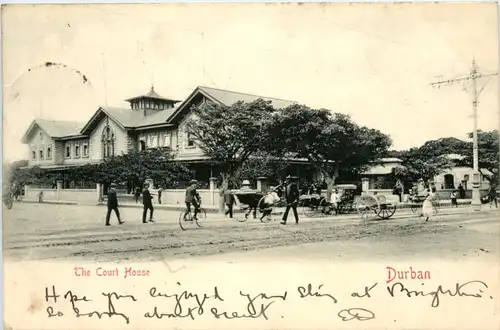 The Court House
Durban
Hope you enjoyed your stay at Brighton.
So sorry about